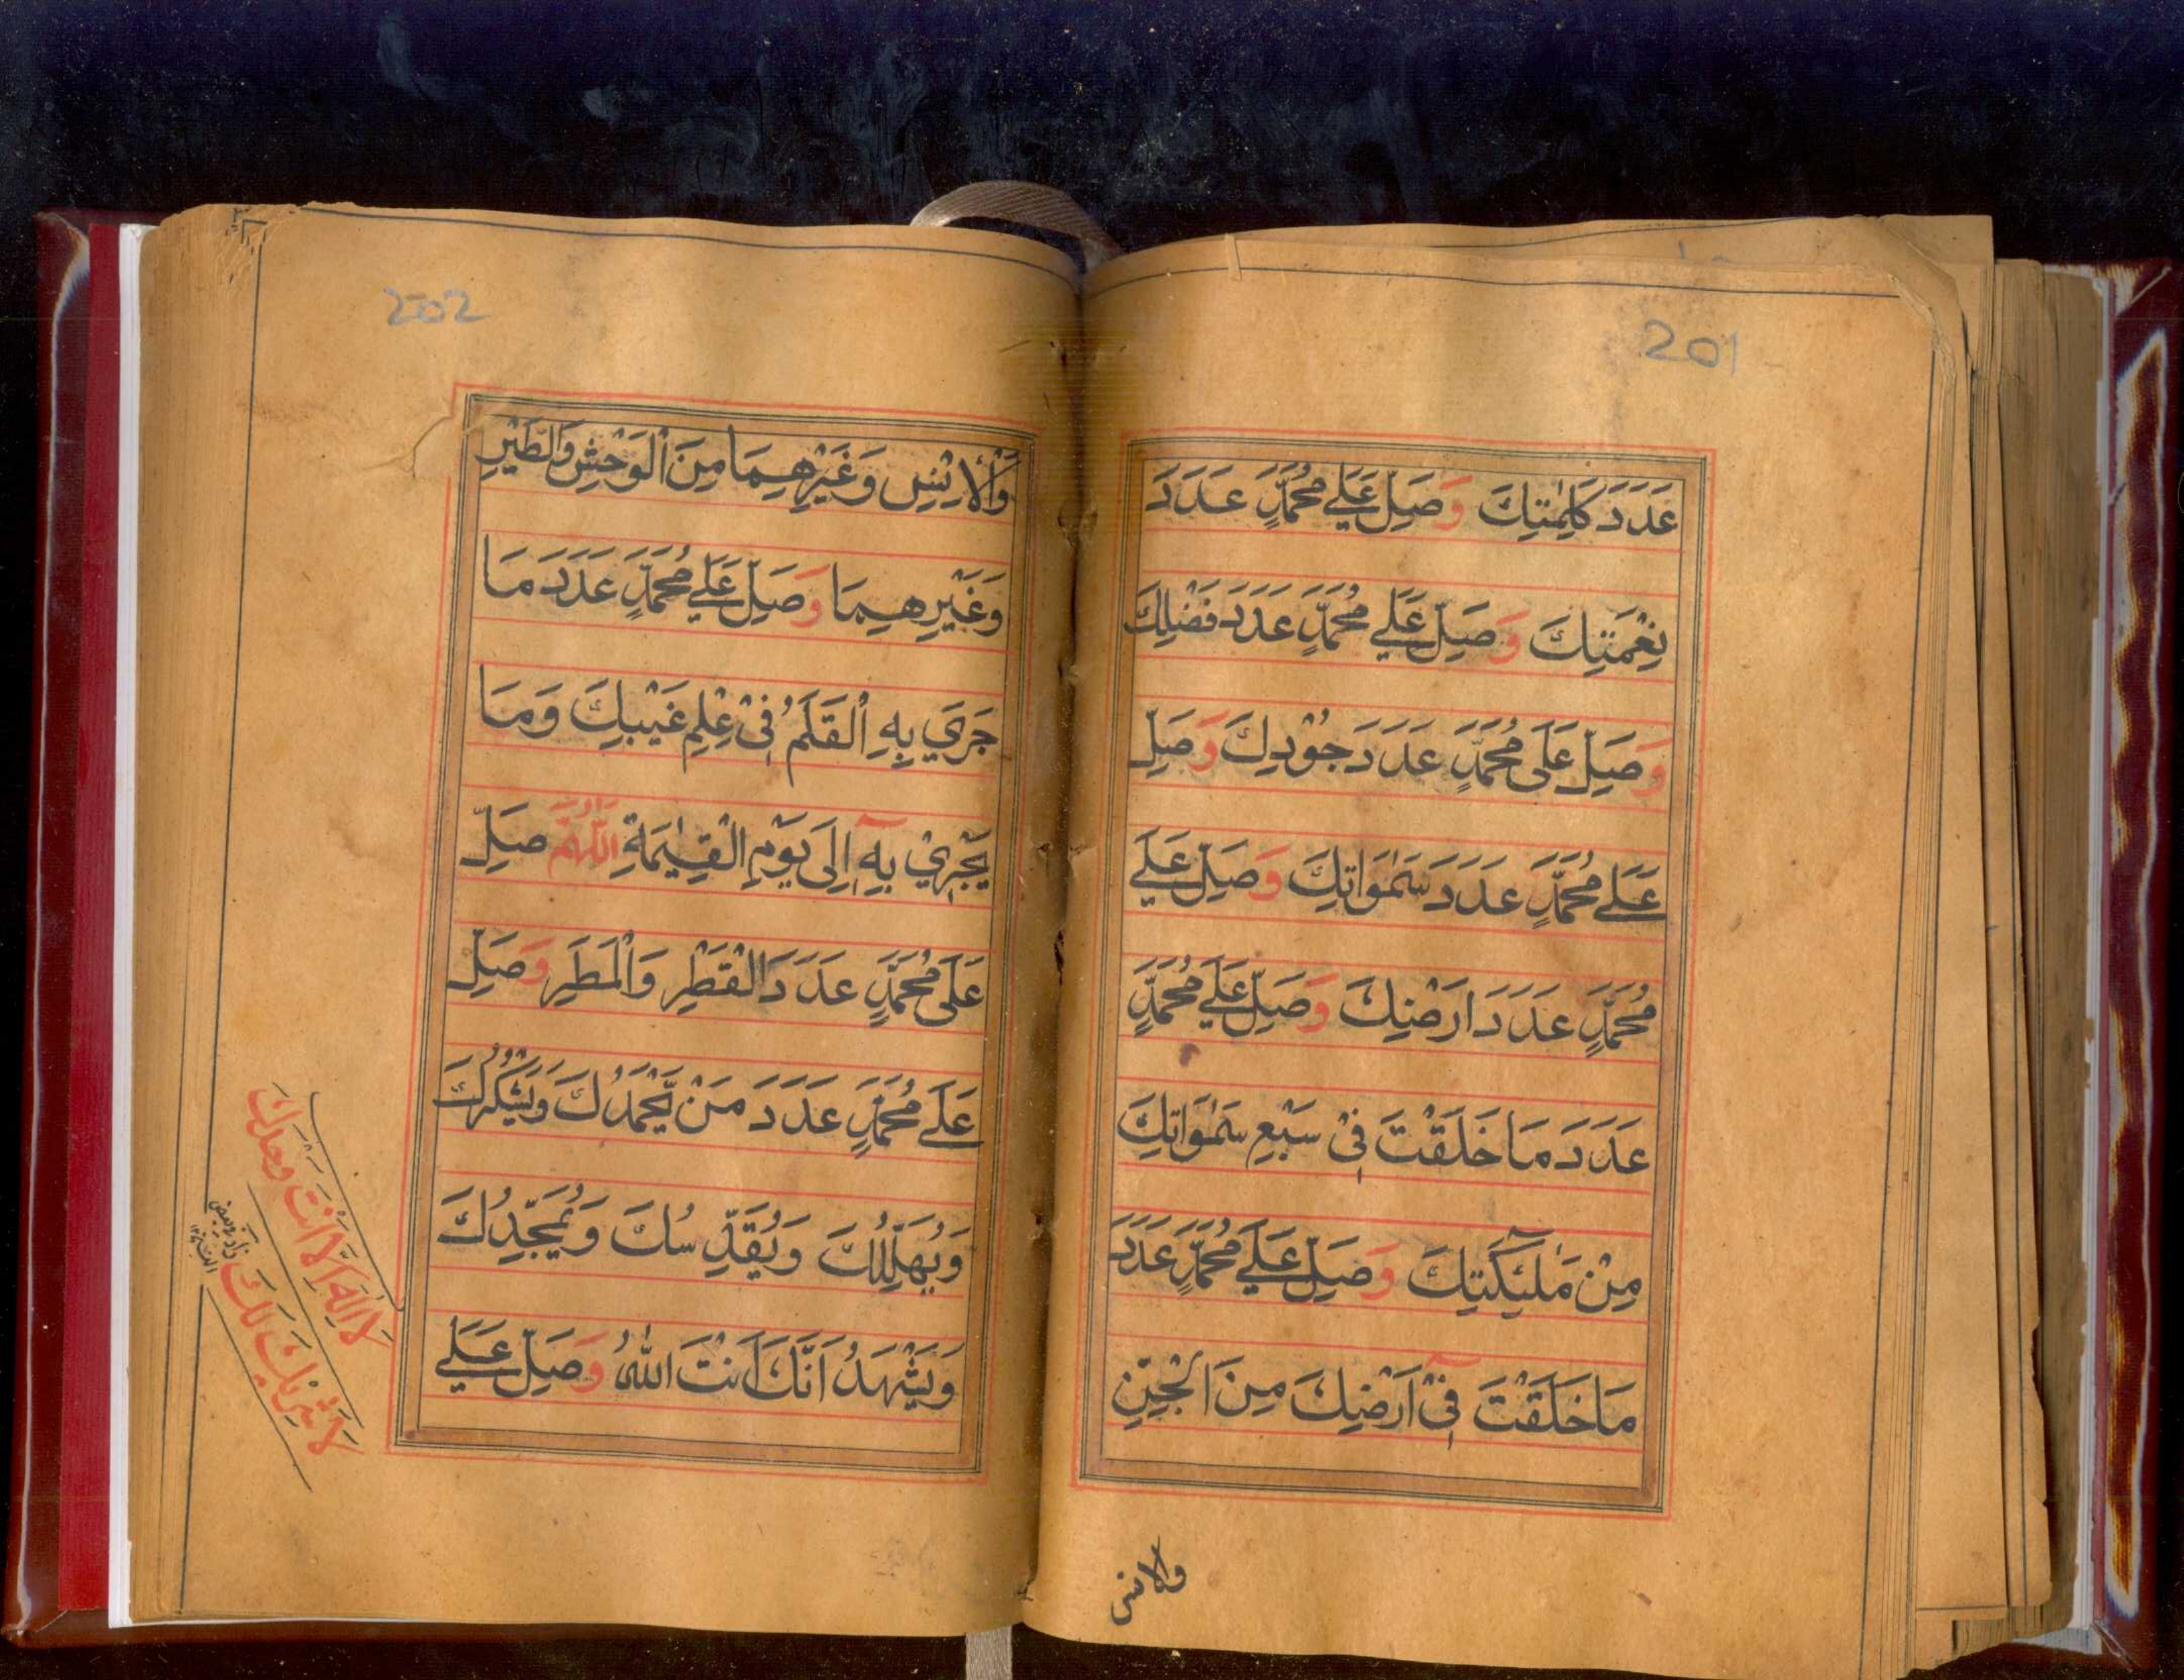 201
عَدَدَ كَلِمٰتِكَ وَصَلِّ عَلٰے مُحَمَّدٍ عَدَدَ
نِعْمَتِكَ وَصَلِّ عَلٰے مُحَمَّدٍ عَدَدَ فَضْلِكَ
وَصَلِّ عَلٰى مُحَمَّدٍ عَدَدَ جُوْدِكَ وَصَلِّ
عَلٰے مُحَمَّدٍ عَدَدَ سَمٰوَاتِكَ وَصَلِّ عَلٰے
مُحَمَّدٍ عَدَدَ اَرْضِكَ وَصَلِّ عَلٰے مُحَمَّدٍ
عَدَدَ مَا خَلَقْتَ فِىْ سَبْعِ سَمٰوَاتِكَ
مِنْ مَلٰٓئِكَتِكَ وَصَلِّ عَلٰے مُحَمَّدٍ عَدَدَ
مَا خَلَقْتَ فِىْٓ اَرْضِكَ مِنَ الْجِنِّ
والانس
202
وَالْاِنْسِ وَغَيْرِهِمَا مِنَ الْوَحْشِ وَالطَّيْرِ
وَغَيْرِهِمَا وَصَلِّ عَلٰے مُحَمَّدٍ عَدَدَ مَا
جَرٰي بِهِ الْقَلَمُ فِىْ عِلْمِ غَيْبِكَ وَمَا
يَجْرِيْ بِهٖٓ اِلٰى يَوْمِ الْقِيٰمَةِ اَللّٰهُمَّ صَلِّ
عَلٰى مُحَمَّدٍ عَدَدَ الْقَطْرِ وَالْمَطَرِ وَصَلِّ
عَلٰے مُحَمَّدٍ عَدَدَ مَنْ يَّحْمَدُكَ وَيَشْكُرُكَ
وَيُهَلِّلُكَ وَيُقَدِّسُكَ وَيُمَجِّدُكَ
وَيَشْهَدُ اَنَّكَ اَنْتَ اللهُ وَصَلِّ عَلٰے
لَا اِلٰهَ اِلَّا اَنْتَ وَحْدَكَ
لَا شَرِيْكَ لَكَ